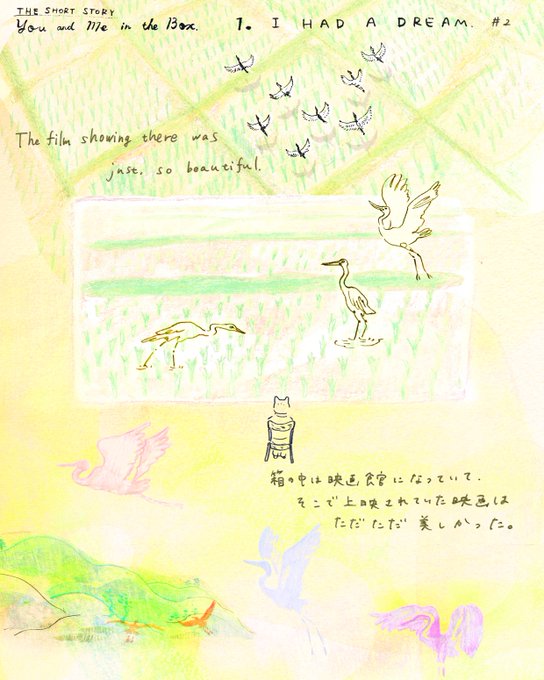 THE SHORT STORY
You and Me in the Box. 1. I HAD A DREAM. #2
The film showing there was
just, so beautiful.
箱の中は映画館になっていて、
そこで上映されていた映画は
ただただ 美しかった。